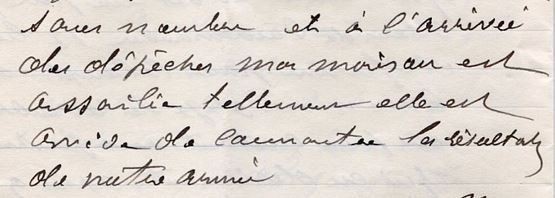 sans nombre et à l'arrivée
des dépêches ma maison est
assaillie tellement elle est
avide de connaitre les résultats
de notre armée